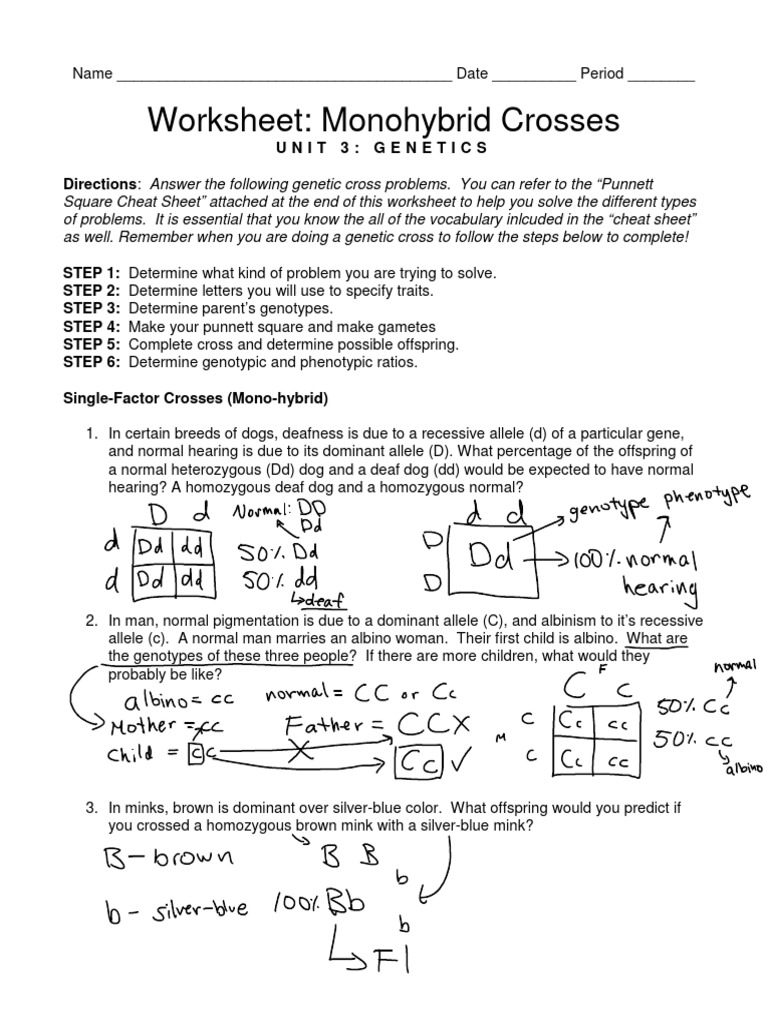 Name ________________________________________ Date __________ Period ________
Worksheet: Monohybrid Crosses
UNIT 3: GENETICS
Directions: Answer the following genetic cross problems. You can refer to the “Punnett
Square Cheat Sheet” attached at the end of this worksheet to help you solve the different types
of problems. It is essential that you know the all of the vocabulary inlcuded in the “cheat sheet”
as well. Remember when you are doing a genetic cross to follow the steps below to complete!
STEP 1: Determine what kind of problem you are trying to solve.
STEP 2: Determine letters you will use to specify traits.
STEP 3: Determine parent’s genotypes.
STEP 4: Make your punnett square and make gametes
STEP 5: Complete cross and determine possible offspring.
STEP 6: Determine genotypic and phenotypic ratios.
Single-Factor Crosses (Mono-hybrid)
1. In certain breeds of dogs, deafness is due to a recessive allele (d) of a particular gene,
and normal hearing is due to its dominant allele (D). What percentage of the offspring of
a normal heterozygous (Dd) dog and a deaf dog (dd) would be expected to have normal
hearing? A homozygous deaf dog and a homozygous normal?
D d Normal: DD
Dd
d Dd dd 50% Dd
d Dd dd 50% dd
deaf
d d genotype phenotype
D
Dd 100% normal
D hearing
2. In man, normal pigmentation is due to a dominant allele (C), and albinism to it’s recessive
allele (c). A normal man marries an albino woman. Their first child is albino. What are
the genotypes of these three people? If there are more children, what would they
probably be like?
albino = cc normal = CC or Cc
Mother = cc Father = CC X
Child = cc X Cc ✓
F normal
C c
M c Cc cc 50% Cc
c Cc cc 50% cc
albino
3. In minks, brown is dominant over silver-blue color. What offspring would you predict if
you crossed a homozygous brown mink with a silver-blue mink?
B – brown B B
b
b - silver-blue 100% Bb
b
F1